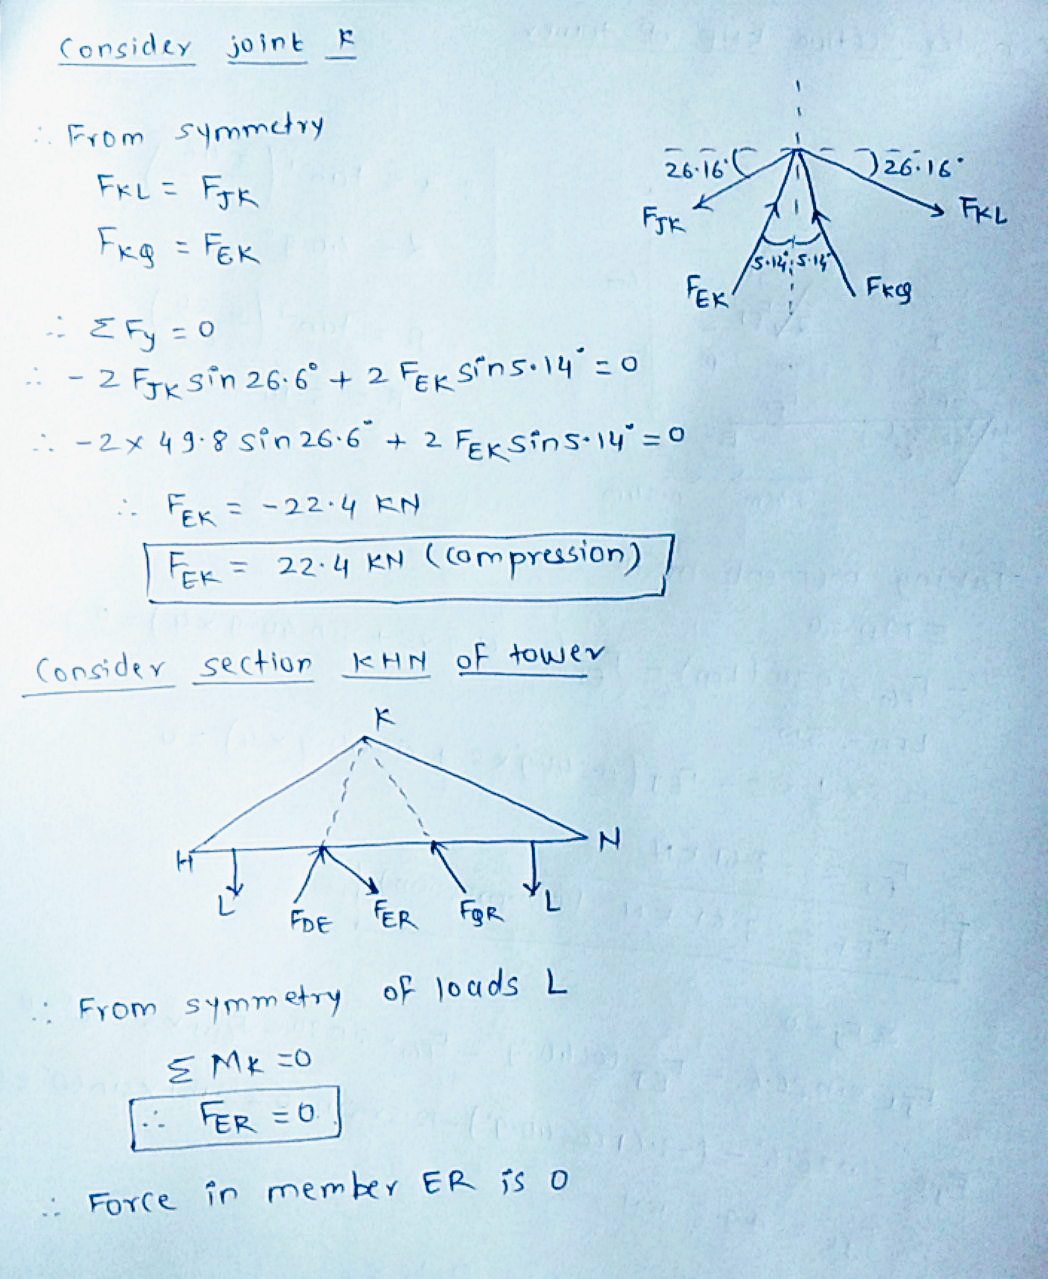 Consider joint K
∴ From symmetry
FKL = FJK
FKQ = FEK
26.16°
26.16°
FJK
FKL
5.14°
5.14°
FEK
FKQ
∴ Σ Fy = 0
∴ - 2 FJK sin 26.6° + 2 FEK sin 5.14° = 0
∴ - 2 × 49.8 sin 26.6° + 2 FEK sin 5.14° = 0
∴ FEK = -22.4 KN
FEK = 22.4 KN (compression)
Consider section KHN of tower
K
H
N
L
FDE
FER
FQR
L
∴ From symmetry of loads L
Σ MK = 0
∴ FER = 0
∴ Force in member ER is 0